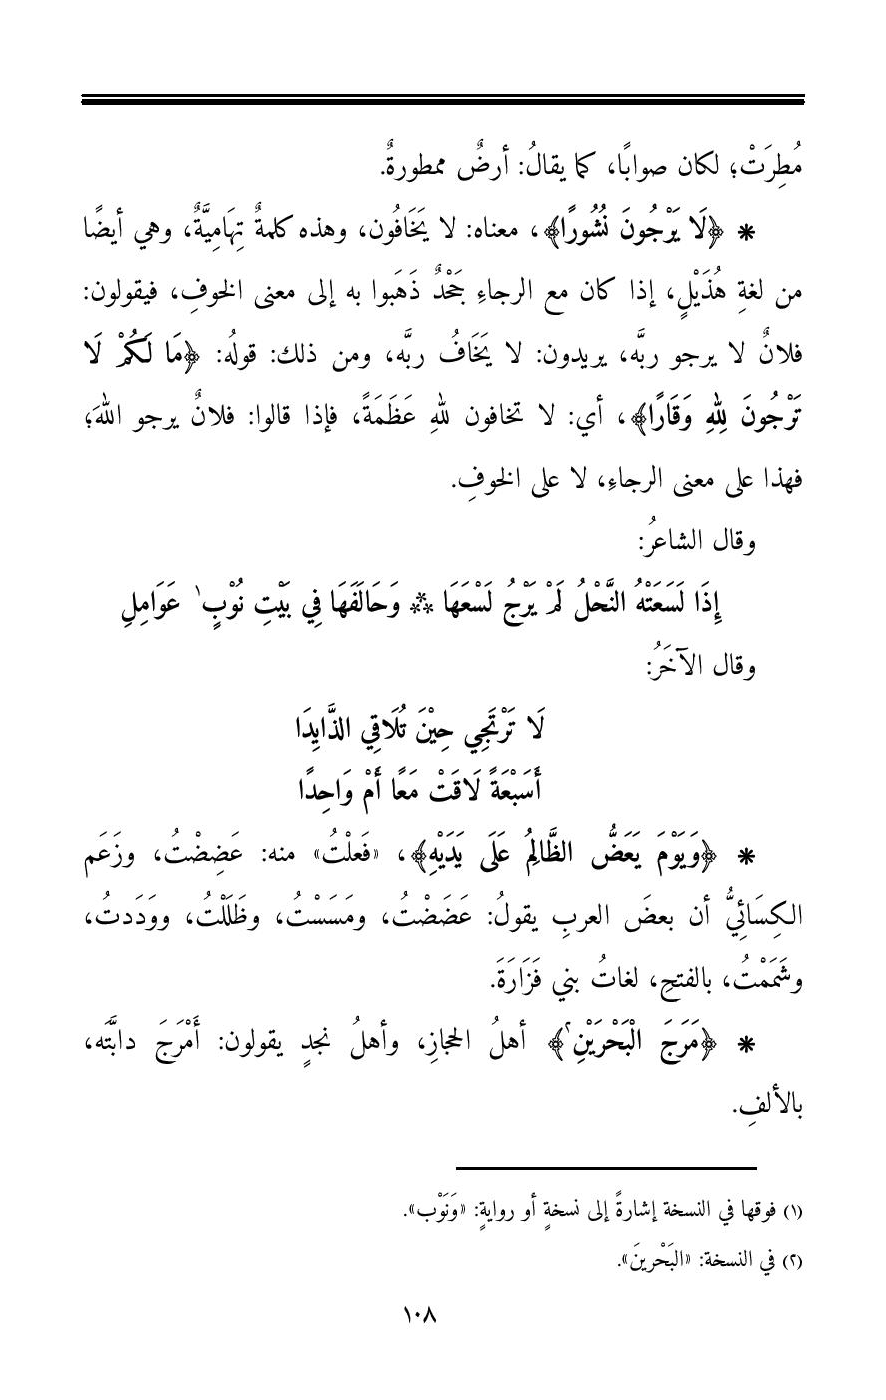 مُطِرَتْ؛ لكان صوابًا، كما يقالُ: أرضٌ ممطورةٌ.
* ﴿لَا يَرْجُونَ نُشُورًا﴾، معناه: لا يَخَافُون، وهذه كلمةٌ تِهَامِيَّةٌ، وهي أيضًا
من لغةِ هُذَيْلٍ، إذا كان مع الرجاءِ جَحْدٌ ذَهَبوا به إلى معنى الخوفِ، فيقولون:
فلانٌ لا يرجو ربَّه، يريدون: لا يَخَافُ ربَّه، ومن ذلك: قولُه: ﴿مَا لَكُمْ لَا
تَرْجُونَ لِلهِ وَقَارًا﴾، أي: لا تخافون للهِ عَظَمَةً، فإذا قالوا: فلانٌ يرجو اللهَ؛
فهذا على معنى الرجاءِ، لا على الخوفِ.
وقال الشاعرُ:
إِذَا لَسَعَتْهُ النَّحْلُ لَمْ يَرْجُ لَسْعَهَا ** وَحَالَفَهَا فِي بَيْتِ نُوْبٍ١ عَوَامِلِ
وقال الآخَرُ:
لَا تَرْتَجِي حِيْنَ تُلَاقِي الذَّايِدَا
أَسَبْعَةً لَاقَتْ مَعًا أَمْ وَاحِدًا
* ﴿وَيَوْمَ يَعَضُّ الظَّالِمُ عَلَى يَدَيْهِ﴾، «فَعلْتُ» منه: عَضِضْتُ، وزَعَم
الكِسَائِيُّ أن بعضَ العربِ يقولُ: عَضَضْتُ، ومَسَسْتُ، وظَلَلْتُ، ووَدَدتُ،
وشَمَمْتُ، بالفتحِ، لغاتُ بني فَزَارَةَ.
* ﴿مَرَجَ الْبَحْرَيْنِ٢﴾ أهلُ الحجازِ، وأهلُ نجدٍ يقولون: أَمْرَجَ دابَّتَه،
بالألفِ.
(١) فوقها في النسخة إشارةً إلى نسخةٍ أو روايةٍ: «وَنَوْب».
(٢) في النسخة: «البَحْرينَ».
١٠٨